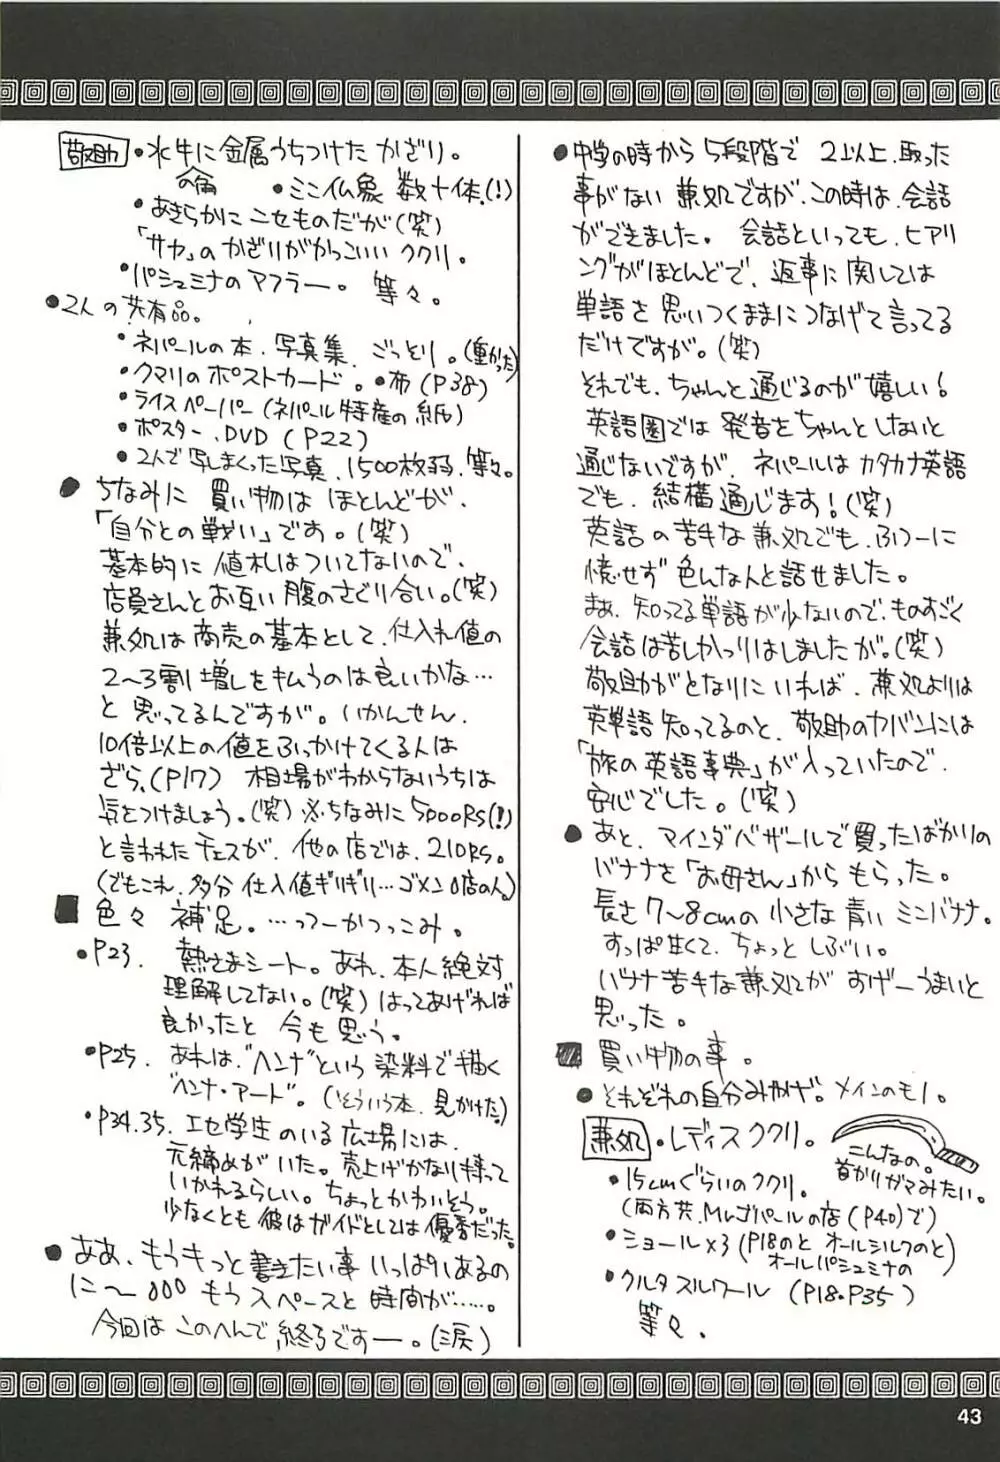 ●中学の時から5段階で 2以上、取った
事がない 兼処ですが、この時は、会話
ができました。 会話といっても、ヒアリ
ングがほとんどで、返事に関しては
単語を思いつくままにつなげて言ってる
だけですが。(笑)
それでも、ちゃんと通じるのが嬉しい!
英語圏では 発音をちゃんとしないと
通じないですが、ネパールは カタカナ英語
でも、結構通じます!(笑)
英語の苦手な兼処でも、ふつーに
憶せず色んな人と話せました。
まぁ、知ってる単語が少ないので、ものすごく
会話は苦しかったりはしましたが。(笑)
敬助がとなりにいれば、兼処よりは
英単語知ってるのと、敬助のカバンには
「旅の英語事典」が入っていたので、
安心でした。(笑)
●あと、マインダバザールで買ったばかりの
バナナを「お母さん」からもらった。
長さ7〜8cmの小さな青いミニバナナ。
すっぱ生くて、ちょっとしぶい。
バナナ苦手な兼処がおげーうまいと
思った。
■買い物の事。
●それぞれの自分みやげ。メインのモノ。
兼処 ・レディスククリ。
こんなの。
首かりガマみたい。
・15cmぐらいのククリ。
(両方共、Mr.ゴパールの店(P40)で)
・ショール×3(P18のとオールシルクのと)
オールパシュミナの
・クルタスルワール (P18・P35)
等々。
敬助 ・水牛に金属うちつけたかざり。
の角
・ミニ仏象 数十体(!)
・あきらかにニセものだが(笑)
「サヤ」のかざりがかっこいいククリ。
・パシュミナのマフラー。 等々。
●2人の共有品。
・ネパールの本、写真集、ごっとり。(重かった)
・クマリのポストカード。 ・布(P38)
・ライスペーパー(ネパール特産の紙)
・ポスター、DVD (P22)
・2人で写しまくった写真、1500枚弱、等々。
●ちなみに 買い物は ほとんどが、
「自分との戦い」です。(笑)
基本的に 値札はついてないので、
店員さんとお互い腹のさぐり合い。(笑)
兼処は商売の基本として、仕入れ値の
2〜3割増しを払うのは良いかな…
と 思ってるんですが。いかんせん、
10倍以上の値をふっかけてくる人は
ざら、(P17) 相場がわからないうちは
気をつけましょう。(笑) ※ちなみに5000Rs(!)
と言われたチェスが、他の店では、210Rs。
(でもこれ、多分仕入値ギリギリ…ゴメン店の人)
■色々 補足。…ってーかつっこみ。
・P23. 熱さまシート。あれ、本人絶対
理解してない。(笑)はってあげれば
良かったと 今も思う。
・P25. あれは、"ヘンナ"という染料で描く
"ヘンナ・アート"。(そういう本、見かけた)
・P34.35. エセ学生のいる広場には、
元締めがいた。売上げかなり持って
いかれるらしい。ちょっとかわいそう。
少なくとも彼はガイドとしては優秀だった。
●ああ、もうもっと書きたい事いっぱいあるの
に〜 もうスペースと時間が……。
今回はこのへんで終了ですー。(涙)
43